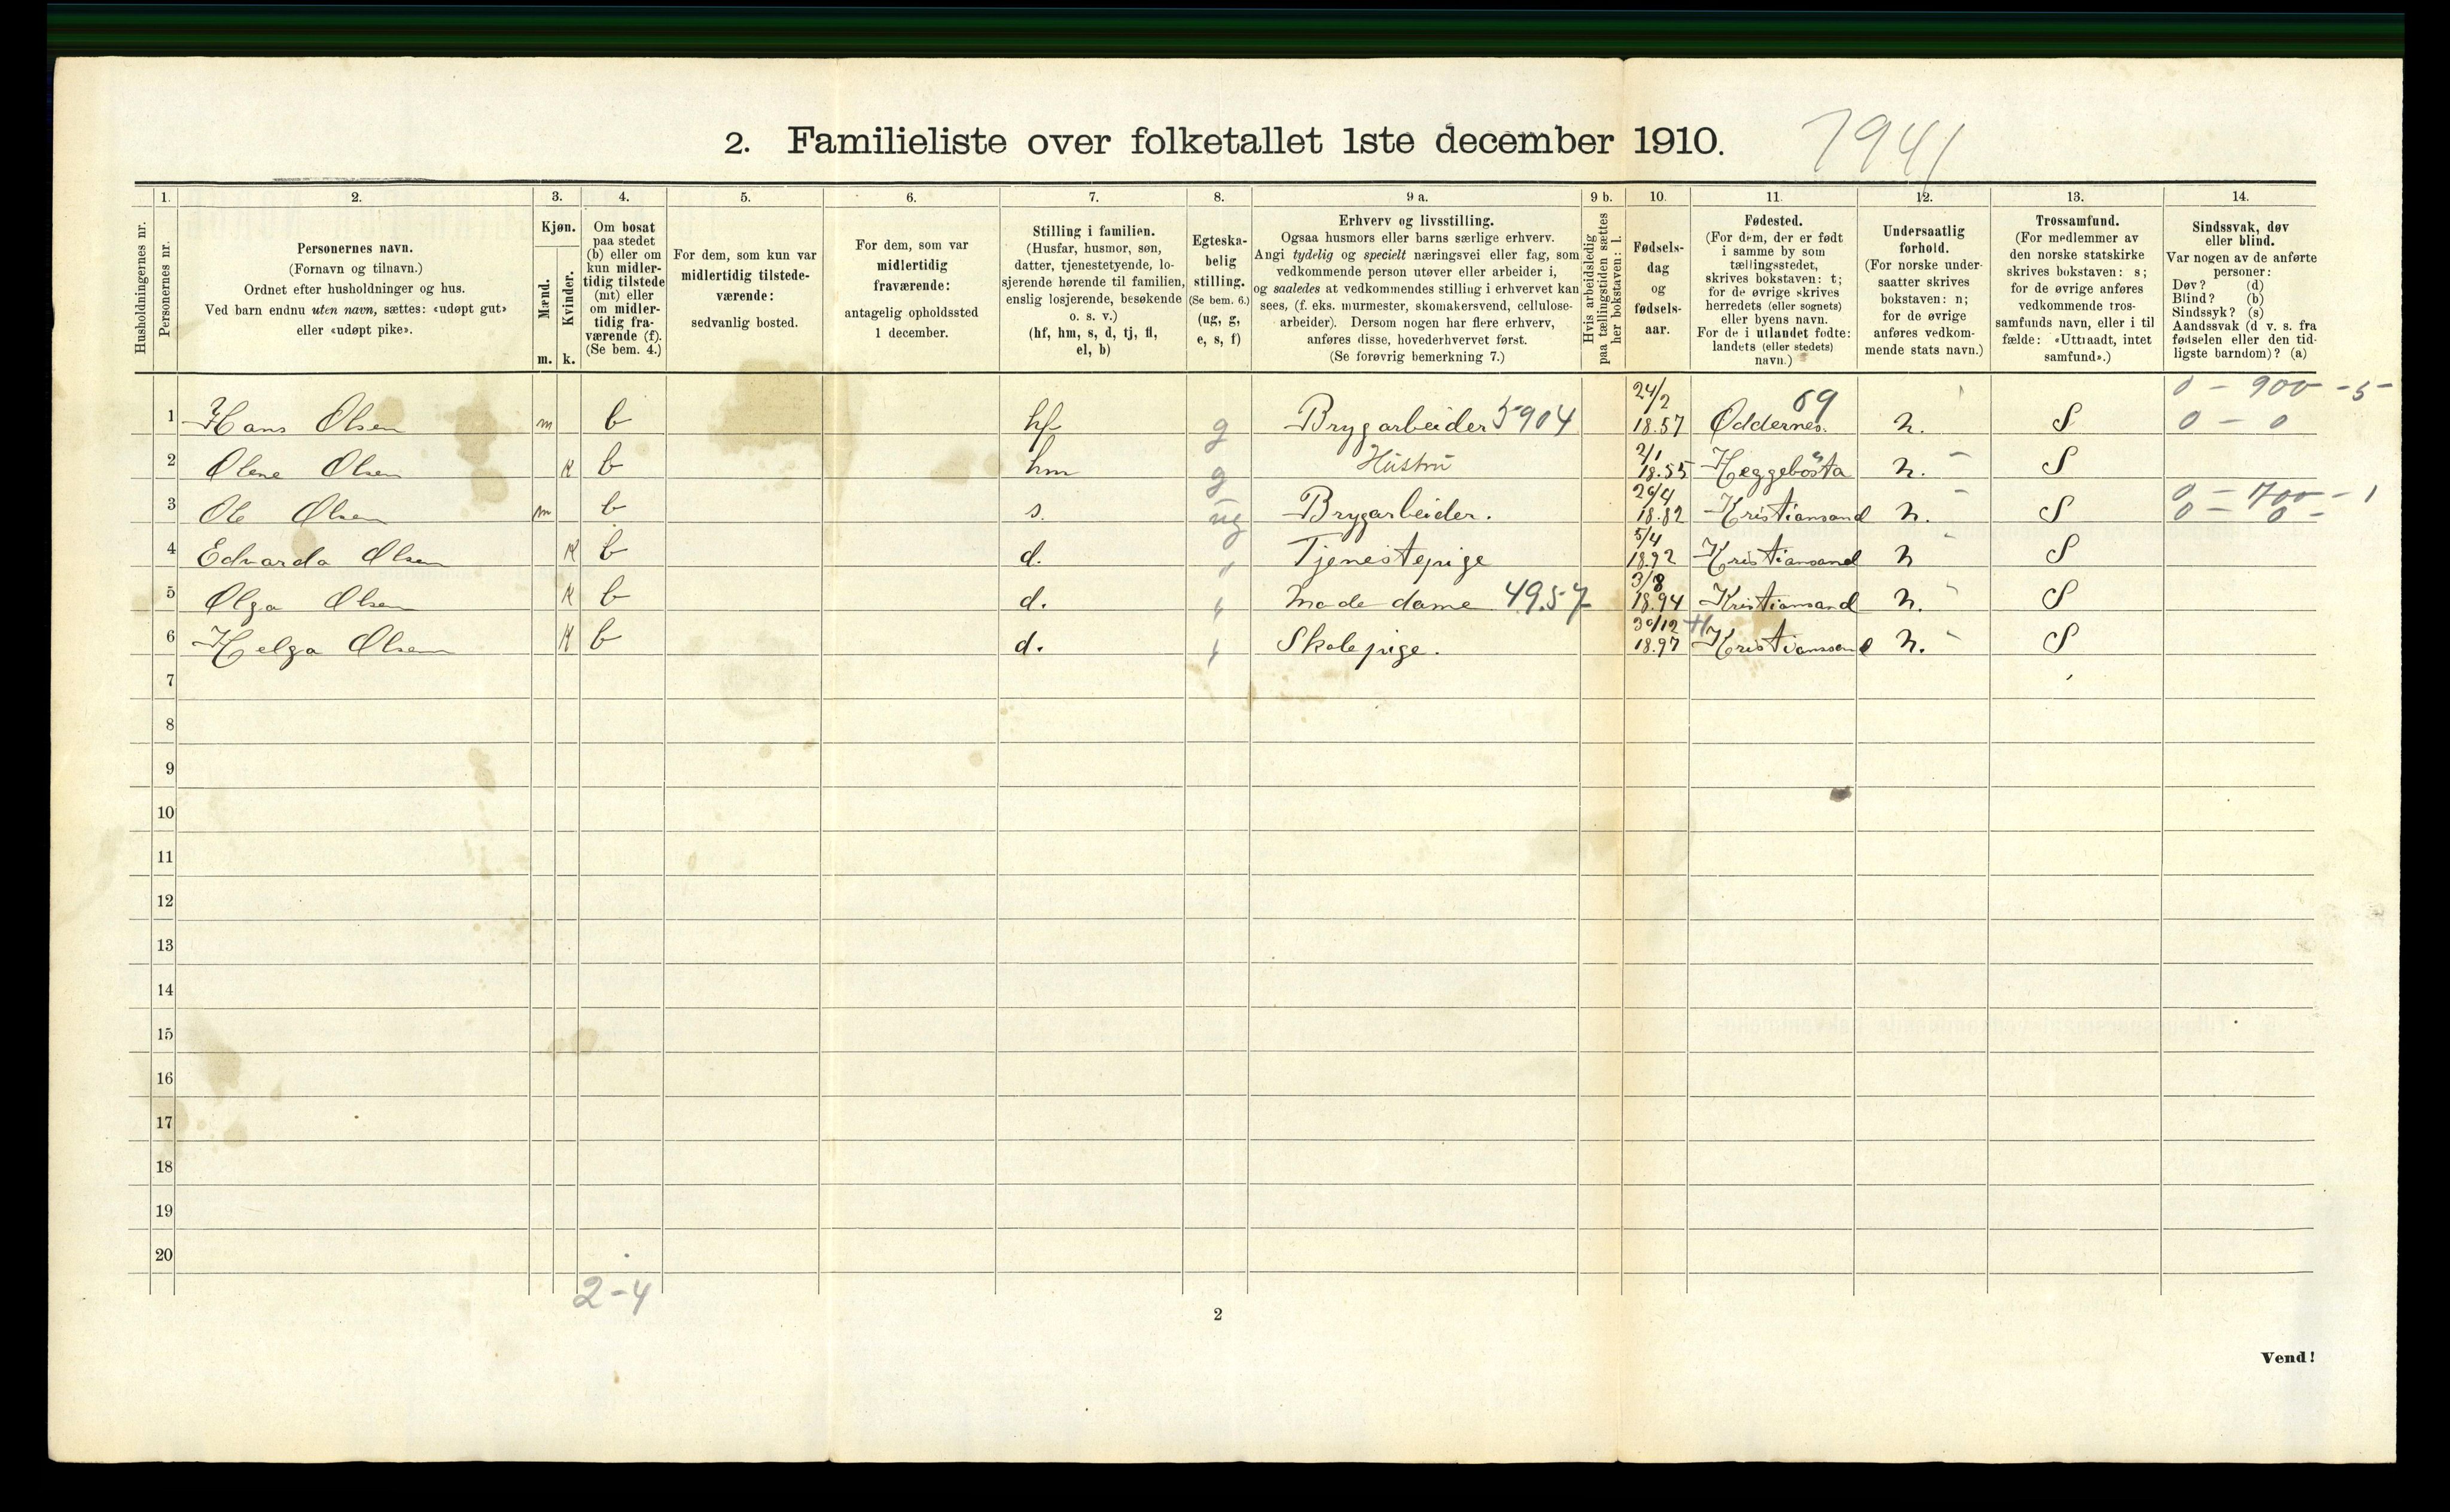 2. Familieliste over folketallet 1ste december 1910.
7941
1. 2. 3. 4. 5. 6. 7. 8. 9 a. 9 b. 10. 11. 12. 13. 14.
Husholdningernes nr.
Personernes nr.
Personernes navn.
(Fornavn og tilnavn.)
Ordnet efter husholdninger og hus.
Ved barn endnu uten navn, sættes: «udøpt gut»
eller «udøpt pike».
Kjøn.
Mænd.
Kvinder.
m. k.
Om bosat
paa stedet
(b) eller om
kun midler-
tidig tilstede
(mt) eller
om midler-
tidig fra-
værende (f).
(Se bem. 4.)
For dem, som kun var
midlertidig tilstede-
værende:
sedvanlig bosted.
For dem, som var
midlertidig
fraværende:
antagelig opholdssted
1 december.
Stilling i familien.
(Husfar, husmor, søn,
datter, tjenestetyende, lo-
sjerende hørende til familien,
enslig losjerende, besøkende
o. s. v.)
(hf, hm, s, d, tj, fl,
el, b)
Egteska-
belig
stilling.
(Se bem. 6.)
(ug, g,
e, s, f)
Erhverv og livsstilling.
Ogsaa husmors eller barns særlige erhverv.
Angi tydelig og specielt næringsvei eller fag, som
vedkommende person utøver eller arbeider i,
og saaledes at vedkommendes stilling i erhvervet kan
sees, (f. eks. murmester, skomakersvend, cellulose-
arbeider). Dersom nogen har flere erhverv,
anføres disse, hovederhvervet først.
(Se forøvrig bemerkning 7.)
Hvis arbeidsledig
paa tællingstiden sættes
her bokstaven: l.
Fødsels-
dag
og
fødsels-
aar.
Fødested.
(For dem, der er født
i samme by som
tællingsstedet,
skrives bokstaven: t;
for de øvrige skrives
herredets (eller sognets)
eller byens navn.
For de i utlandet fødte:
landets (eller stedets)
navn.)
Undersaatlig
forhold.
(For norske under-
saatter skrives
bokstaven: n;
for de øvrige
anføres vedkom-
mende stats navn.)
Trossamfund.
(For medlemmer av
den norske statskirke
skrives bokstaven: s;
for de øvrige anføres
vedkommende tros-
samfunds navn, eller i til-
fælde: «Uttraadt, intet
samfund».)
Sindssvak, døv
eller blind.
Var nogen av de anførte
personer:
Døv? (d)
Blind? (b)
Sindssyk? (s)
Aandssvak (d v. s. fra
fødselen eller den tid-
ligste barndom)? (a)
0 - 900 - 5 -
1 Hans Olsen m b hf g Brygarbeider 5904 24/2 18.57 69 Oddernes. n. S 0 - 0
2 Olene Olsen k b hm g Hustru 2/1 18.55 Heggebøsta n. S
3 Ole Olsen m b s. ug Brygarbeider. 20/4 18.82 Kristiansand n. S 0 - 700 - 1
0 - 0 -
4 Edvarda Olsen k b d. " Tjenestepige 5/4 18.92 Kristiansand n S
5 Olga Olsen k b d. Mode dame 49.57 3/8 18.94 Kristiansand n. S
6 Helga Olsen k b d. Skolepige. 30/12 18.97 Kristianssand n. S
7
8
9
10
11
12
13
14
15
16
17
18
19
20
2-4
2
Vend!